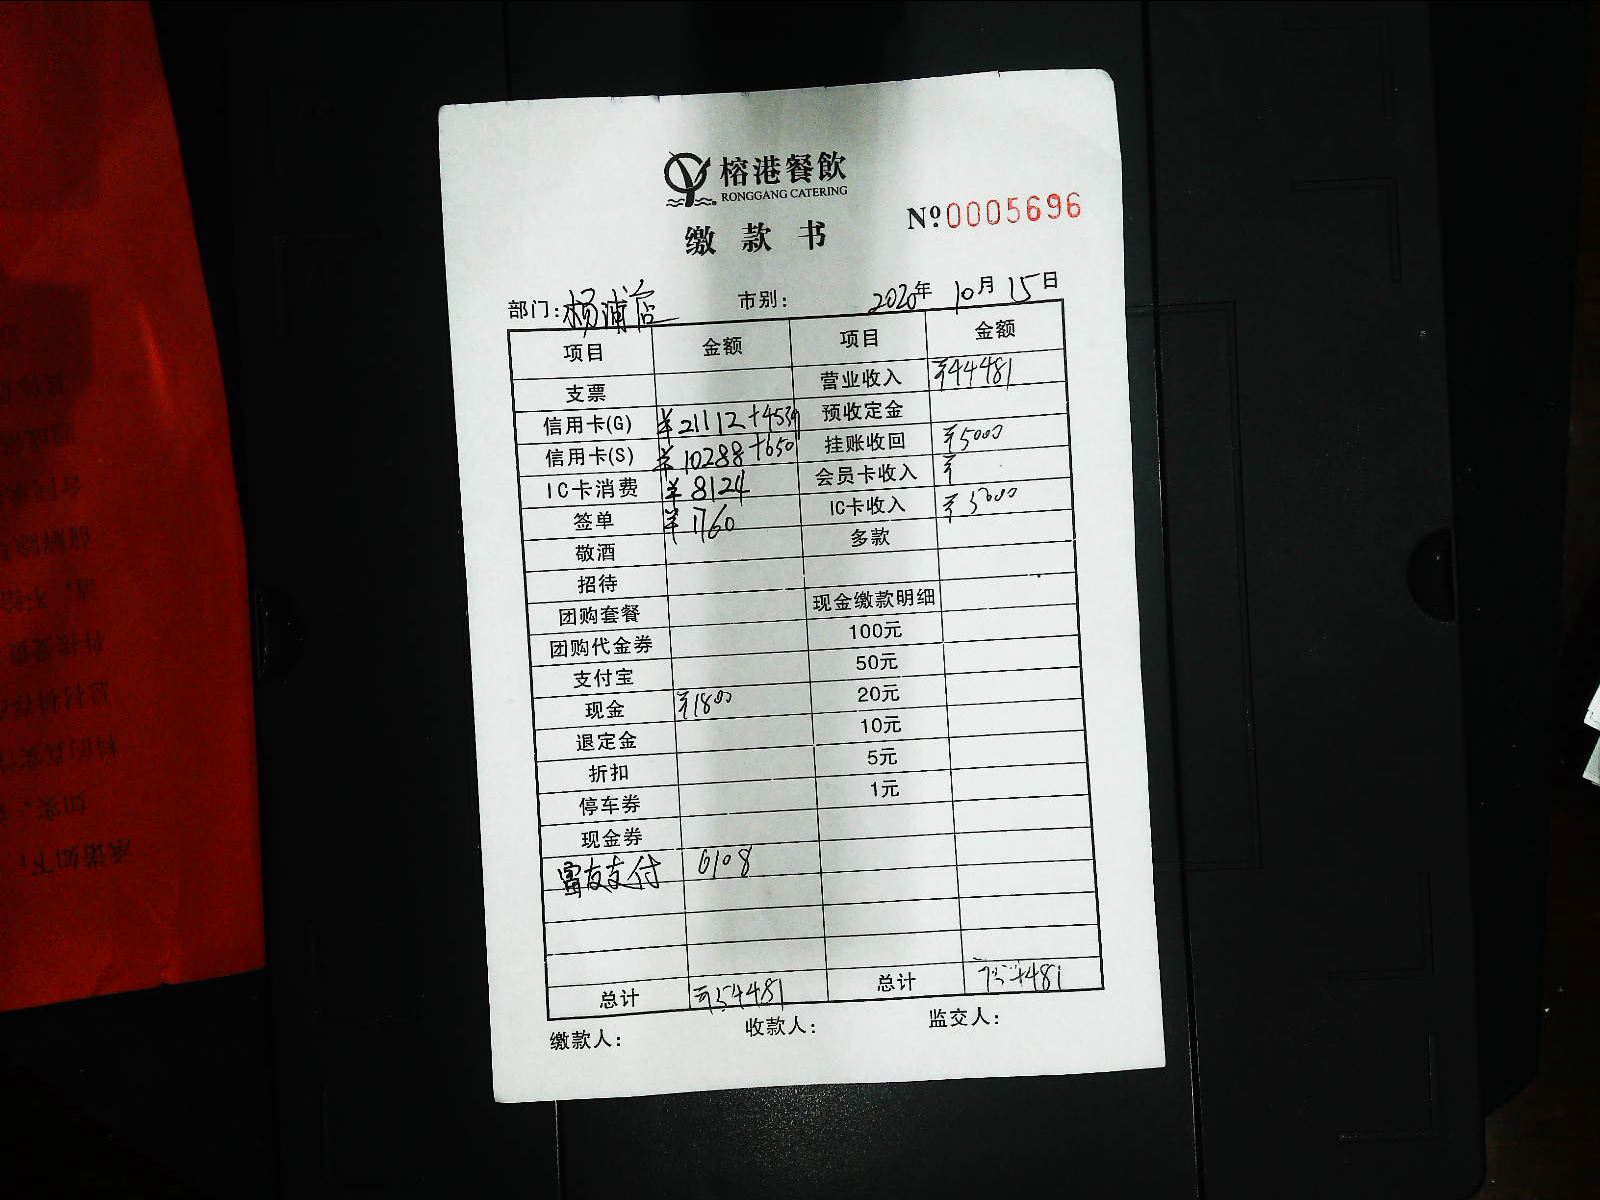 榕港餐飲
RONGGANG CATERING
缴款书
№0005696
部门:杨浦店 市别: 2020年10月15日
项目 金额 项目 金额
支票 营业收入 ¥44481
信用卡(G) ¥21112+4539 预收定金
信用卡(S) ¥10288+650 挂账收回 ¥5000
IC卡消费 ¥8124 会员卡收入 ¥
签单 ¥1760 IC卡收入 ¥5000
敬酒 多款
招待
团购套餐 现金缴款明细
团购代金券 100元
支付宝 50元
现金 ¥1800 20元
退定金 10元
折扣 5元
停车券 1元
现金券
富友支付 6108
总计 ¥54481 总计 ¥54481
缴款人: 收款人: 监交人:
承诺如下:
如实、